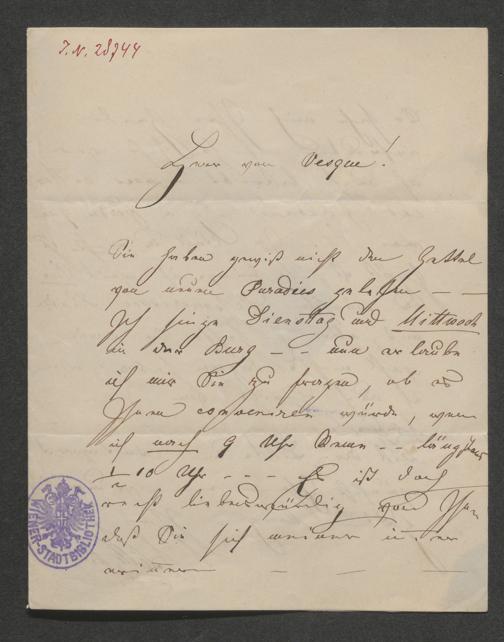 J.N. 28744
Herr von Vesque!
Sie haben gewiß nicht den Zettel
von neuen Paradies gelesen — —
Ich singe Dienstag und Mittwoch
in der Burg – – nun erlaube
ich mir Sie zu fragen, ob es
Ihnen conveniren würde, wenn
ich nach 9 Uhr komme – – längstens
½ 10 Uhr – – – Es ist doch
recht liebenswürdig von Ihnen
daß Sie sich meiner immer
erinnern — — —
WIENER-STADTBIBLIOTHEK